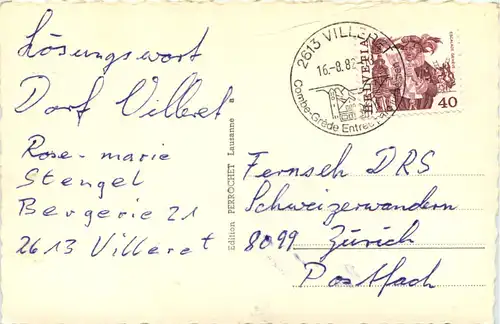 Lösungswort
Dorf Villeret
Rose-marie
Stengel
Bergerie 21
2613 Villeret
Edition PERROCHET Lausanne a
2613 VILLERET
16.-8.82
Combe-Grède Entrée
HELVETIA
40
Fernseh DRS
Schweizerwandern
8099 Zürich
Postfach